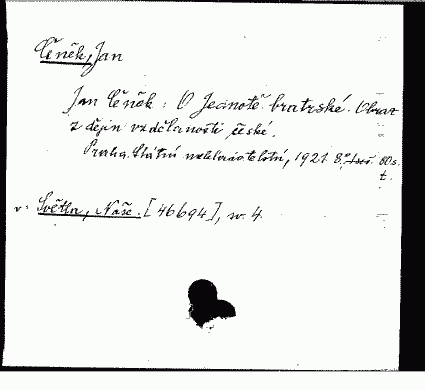 Čeněk, Jan
Jan Čeněk: O Jednotě bratrské. Obraz
z dějin vzdělanosti české.
Praha. Státní nakladatelství, 1921. 8° 80 s.
t.
v: Světla, Naše. [46694], sv. 4.